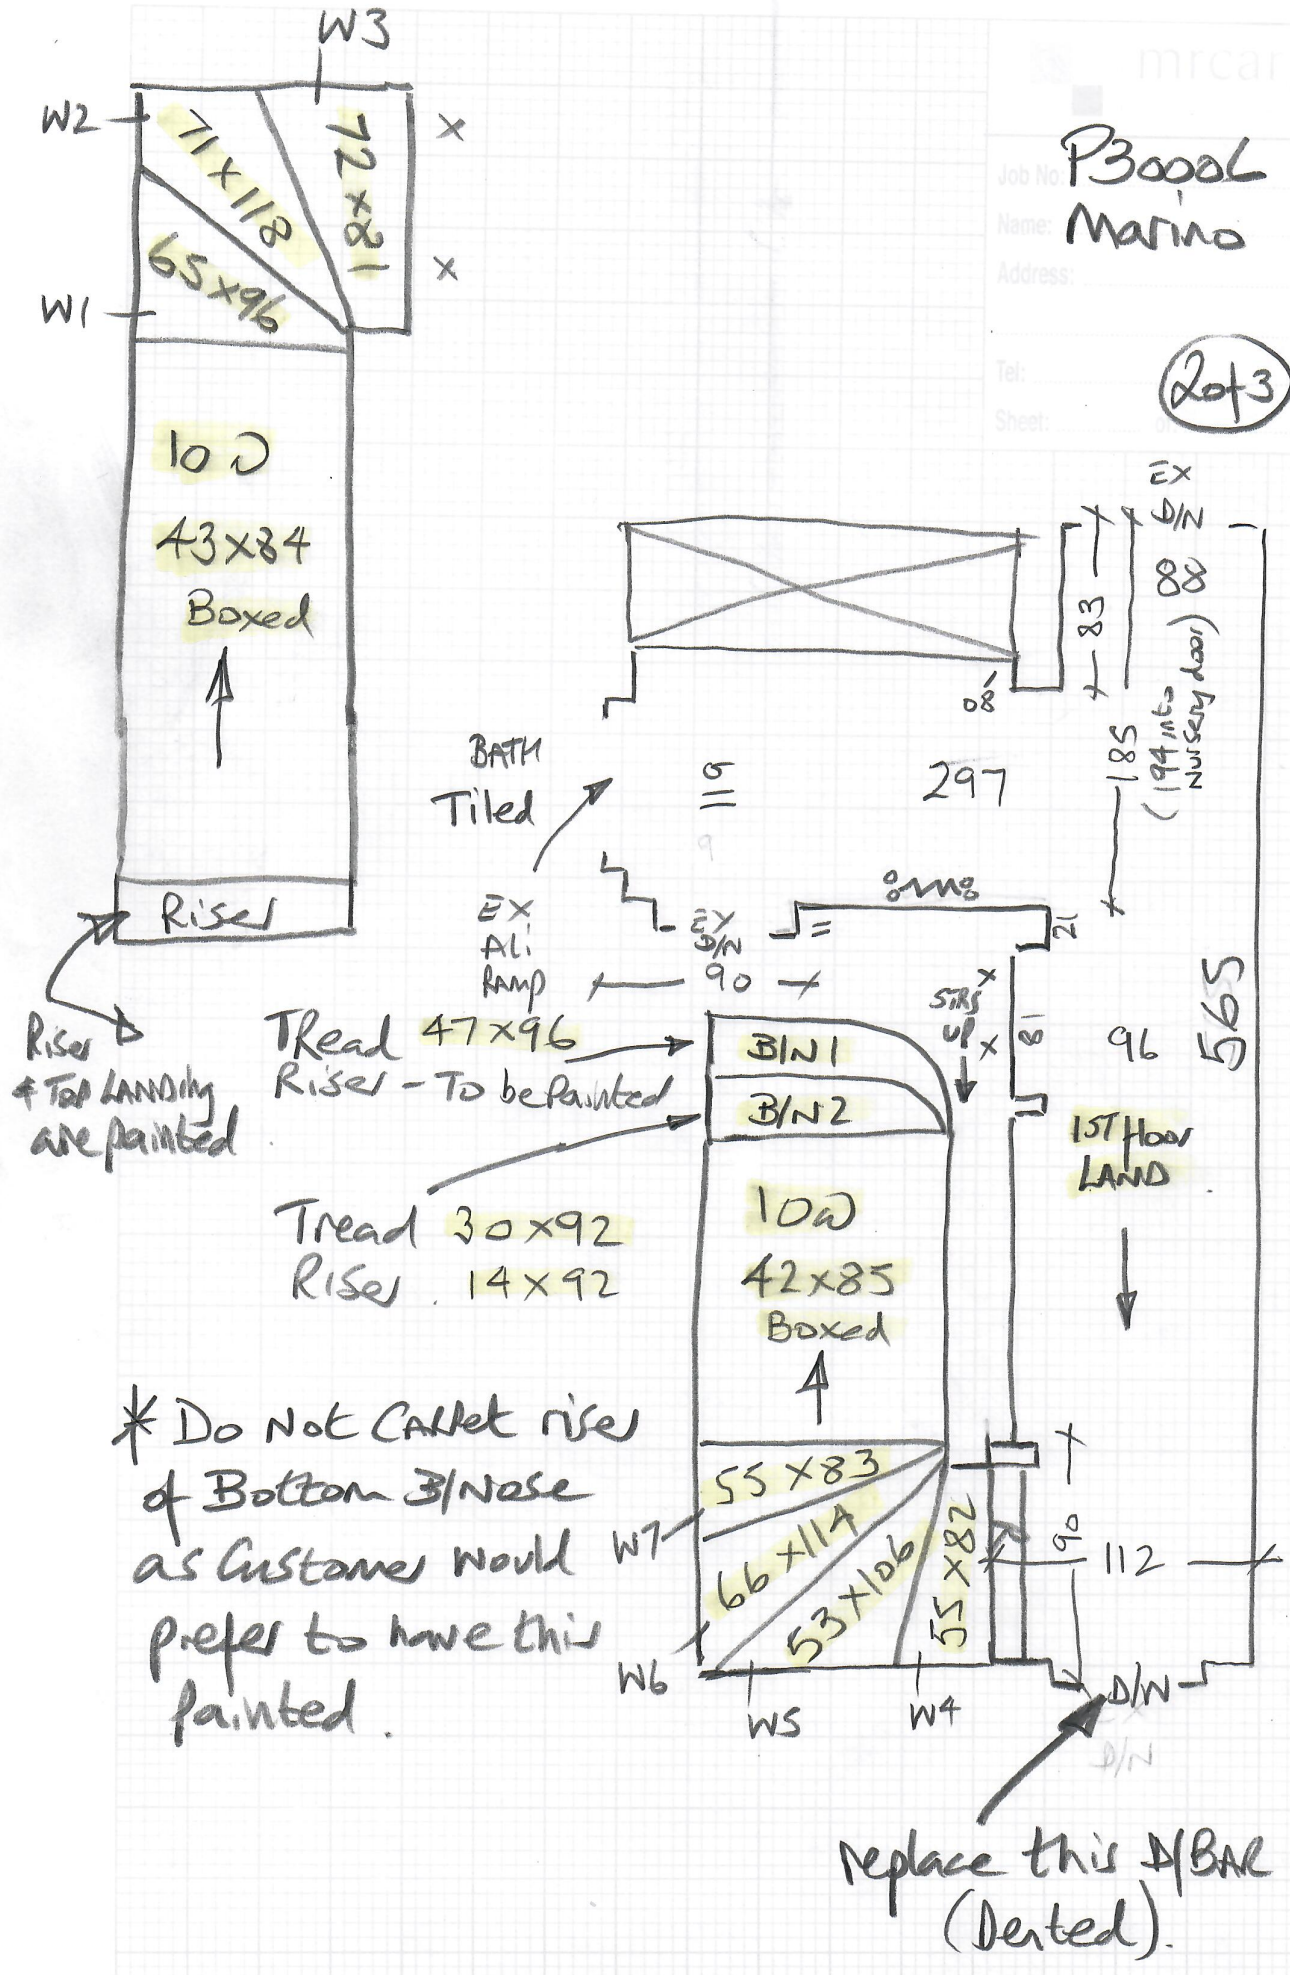 W3
W2
71 x 118
72 x 81
x
x
65 x 96
W1
10 @
43 x 84
Boxed
Riser
Riser
& TOP LANDING
are painted
mrcar
Job No: P3000L
Name: Marino
Address:
Tel:
Sheet:
2 of 3
EX
D/N
83
88
185
(194 into
Nursery door)
565
08
BATH
Tiled
297
EX
Ali
RAMP
EX
D/N
11
21
90
STRS
UP
x
x
81
96
1ST Floor
LAND
TRead 47 x 96
Riser - To be Painted
B/N 1
B/N 2
Tread 30 x 92
Riser 14 x 92
10 @
42 x 85
Boxed
* Do Not Carpet riser
of Bottom B/Nose
as Customer would
prefer to have this
painted.
55 x 83
W7
66 x 114
53 x 106
55 x 82
90
112
W6
W5
W4
D/W
D/N
replace this D/BAR
(Dented).